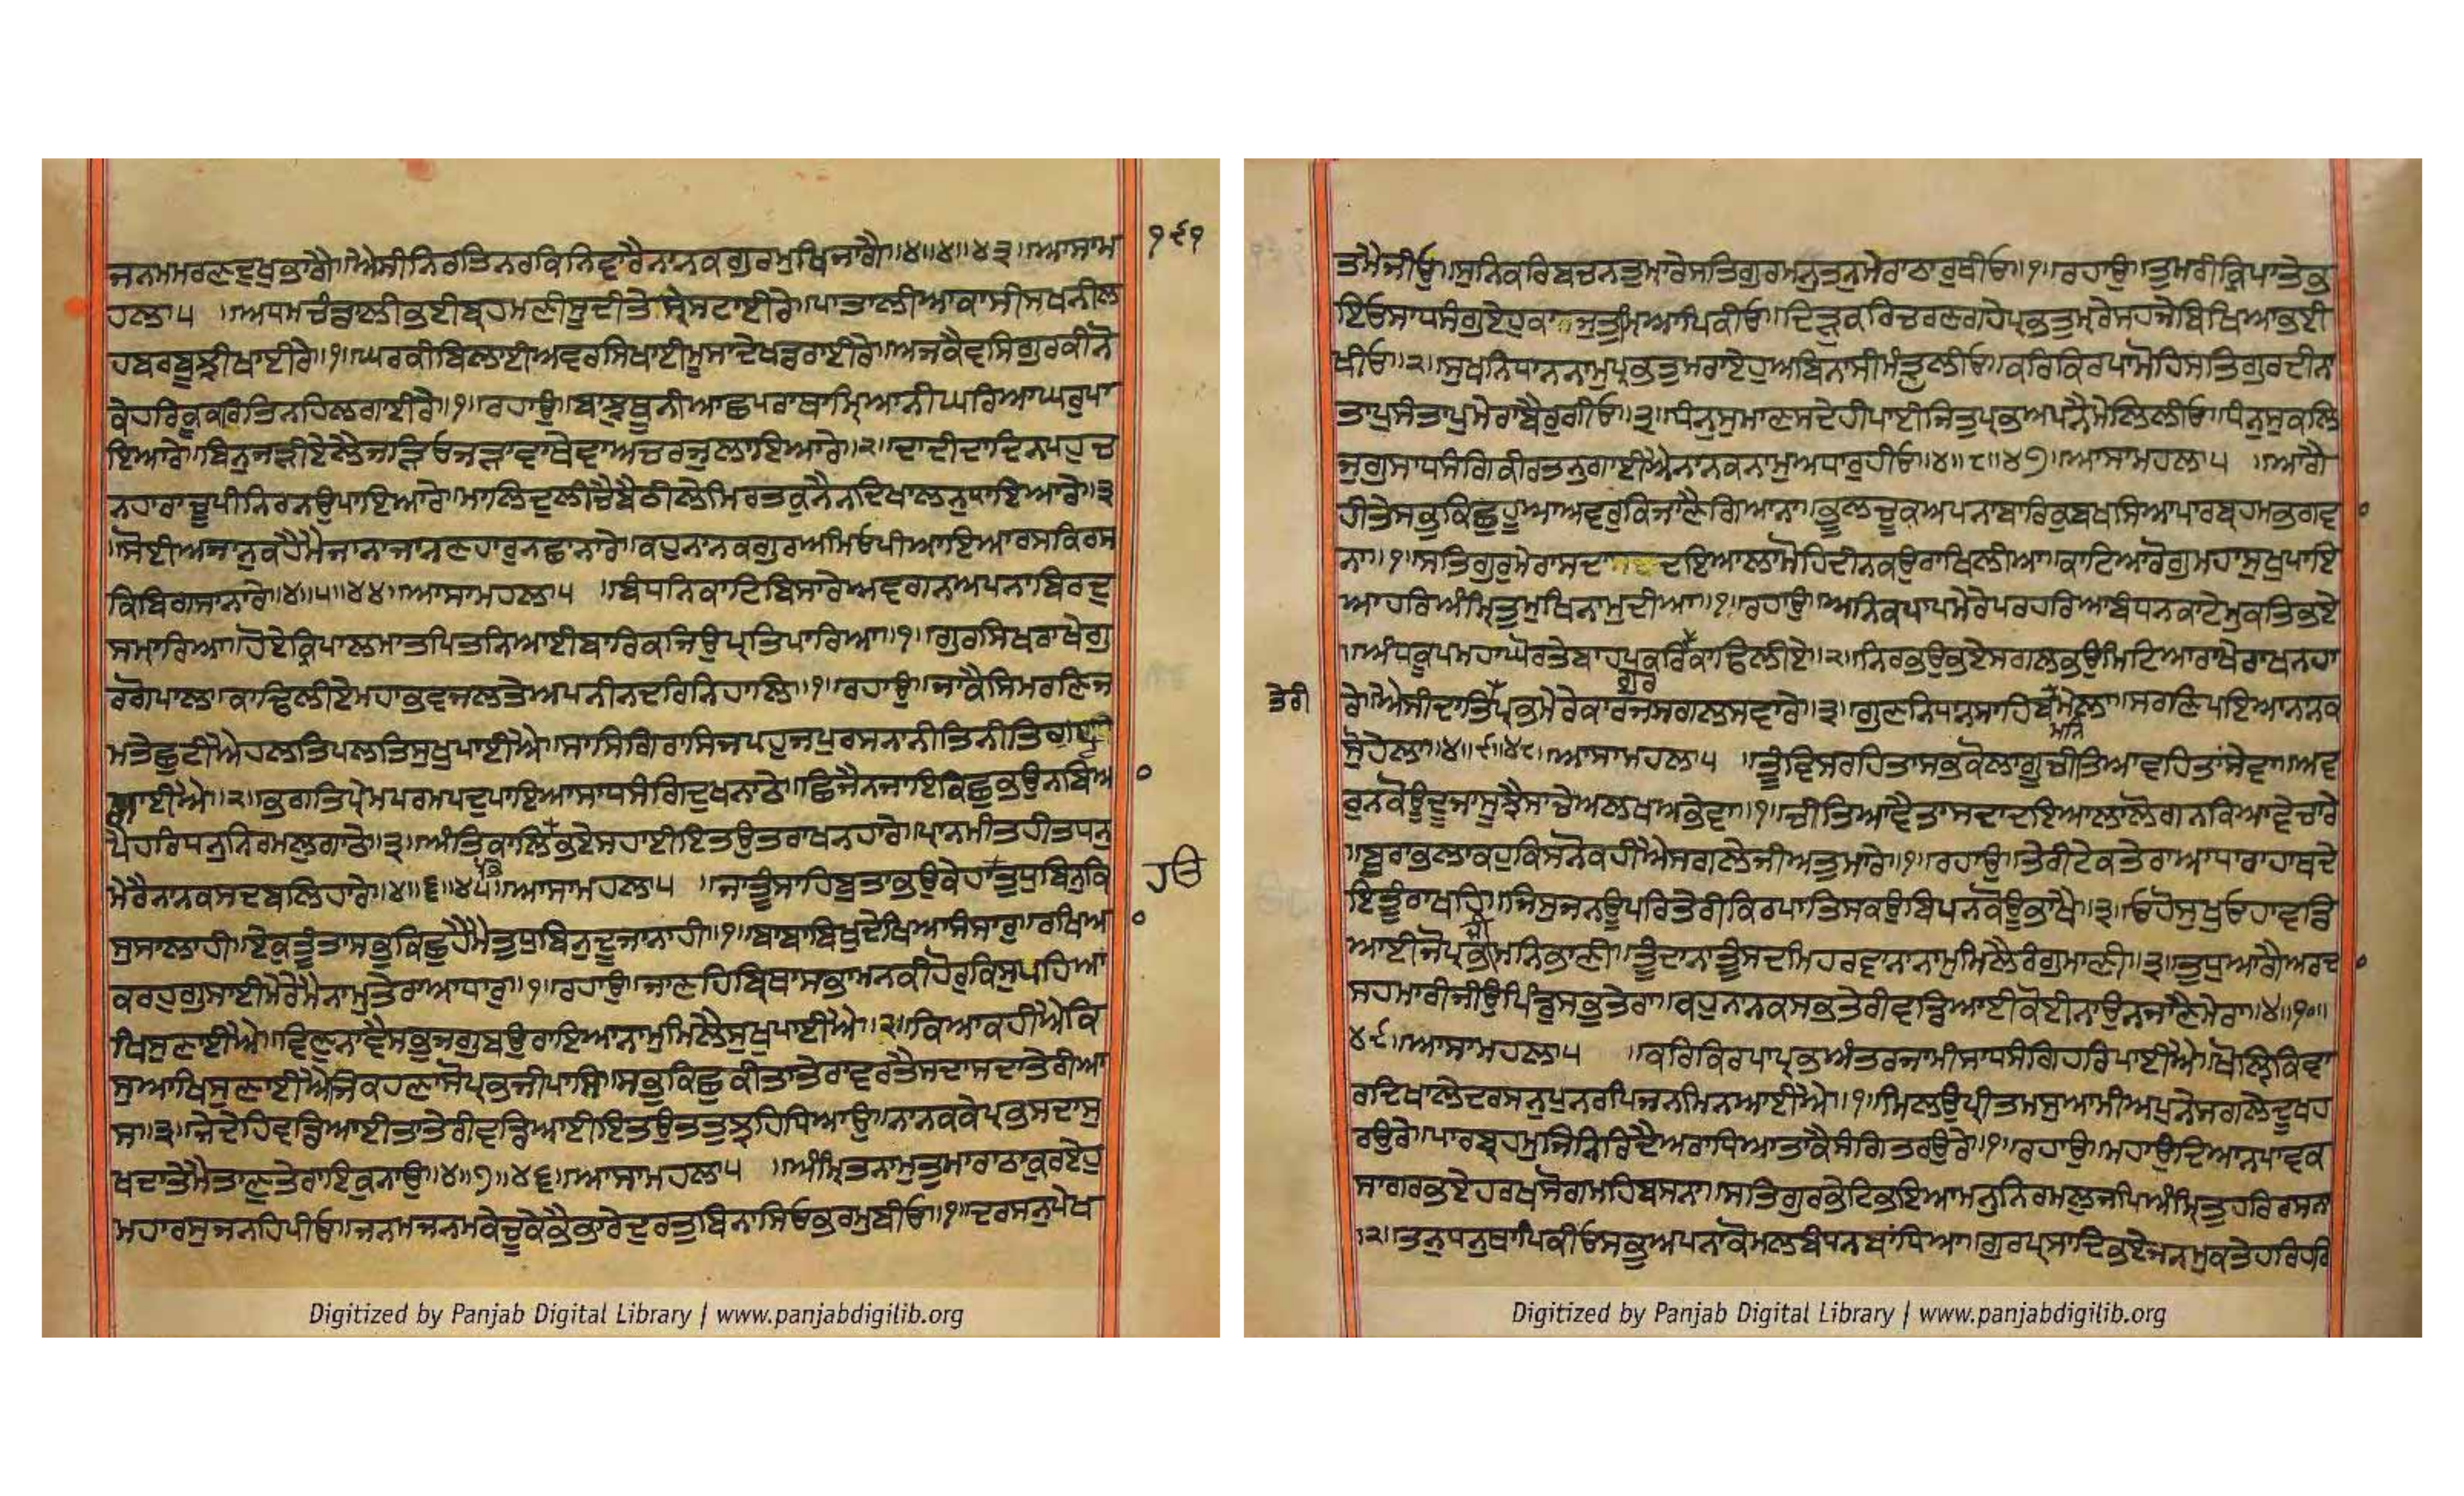 ੧੯੧
ਜਨਮਮਰਣਦੁਖੁਭਾਗੈ॥ਐਸੀਨਿਰਤਿਨਰਕਿਨਿਵਾਰੈਨਾਨਕਗੁਰਮੁਖਿਜਾਗੈ॥੪॥੪॥੪੩॥ਆਸਾਮ
ਹਲਾ੫ ॥ਅਧਮਚੰਡਾਲੀਭਈਬ੍ਰਹਮਣੀਸੂਦੀਤੇਸ੍ਰੇਸਟਾਈਰੇ॥ਪਾਤਾਲੀਆਕਾਸੀਸਖਨੀਲ
ਹਬਰਬੂਝੀਖਾਈਰੇ॥੧॥ਘਰਕੀਬਿਲਾਈਅਵਰਸਿਖਾਈਮੂਸਾਦੇਖਡਰਾਈਰੇ॥ਅਜਕੈਵਸਿਗੁਰਕੀਨੋ
ਕੇਹਰਿਕੂਕਰਤਿਨਹਿਲਗਾਈਰੇ॥੧॥ਰਹਾਉ॥ਬਾਝੁਥੂਨੀਆਛਪਰਾਥਾਮਿ੍ਆਨੀਘਰਿਆਘਰੁਪਾ
ਇਆਰੇ॥ਬਿਨੁਜੜੀਏਲੈਜੜਿਓਜੜਾਵਾਥੇਵਾਅਚਰਜੁਲਾਇਆਰੇ॥੨॥ਦਾਦੀਦਾਦਿਨਪਹੁਚ
ਨਹਾਰਾਚੂਪੀਨਿਰਨਉਪਾਇਆਰੇ॥ਮਾਲਿਦੁਲੀਚੈਬੈਠੀਲੇਮਿਰਤਕੁਨੈਨਦਿਖਾਲਨੁਧਾਇਆਰੇ॥੩
॥ਸੋਈਅਜਾਨੁਕਹੈਮੈਜਾਨਾਜਾਨਣਹਾਰੁਨਛਾਨਾਰੇ॥ਕਹੁਨਾਨਕਗੁਰਅਮਿਓਪੀਆਇਆਰਸਕਿਰਸ
ਕਿਬਿਗਸਾਨਾਰੇ॥੪॥੫॥੪੪॥ਆਸਾਮਹਲਾ੫ ॥ਬੰਧਨਿਕਾਟਿਬਿਸਾਰੇਅਵਗਨਾਅਪਨਾਬਿਰਦੁ
ਸਮਾ੍ਰਿਆ॥ਹੋਏਕ੍ਰਿਪਾਲਮਾਤਪਿਤਨਿਆਈਬਾਰਿਕਜਿਉਪ੍ਰਤਿਪਾਰਿਆ॥੧॥ਗੁਰਸਿਖਰਾਖੇਗੁ
ਰਗੋਪਾਲਾ॥ਕਾਢਿਲੀਏਮਹਾਭਵਜਲਤੇਅਪਨੀਨਦਰਿਨਿਹਾਲਿ॥੧॥ਰਹਾਉ॥ਜਾਕੈਸਿਮਰਣਿਜ
ਮਤੇਛੁਟੀਐਹਲਤਿਪਲਤਿਸੁਖੁਪਾਈਐ॥ਸਾਸਿਗਿਰਾਸਿਜਪਹੁਜਪੁਰਸਨਾਨੀਤਨੀਤਿਗੁਣ
ਗਾਈਐ॥੨॥ਭਗਤਿਪ੍ਰੇਮਪਰਮਪਦੁਪਾਇਆਸਾਧਸੰਗਿਦੁਖਨਾਠੇ॥ਛਿਜੈਨਜਾਇਕਿਛੁਭਉਨਬਿਆ
ਪੈਹਰਿਧਨੁਨਿਰਮਲੁਗਾਠੇ॥੩॥ਅੰਤਿਕਾਲਿਭਏਸਹਾਈਇਤਉਤਰਾਖਨਹਾਰੇ॥ਪ੍ਰਾਨਮੀਤਹੀਤਧਨੁ
ਪ੍ਰਭ
ਮੇਰੈਨਾਨਕਸਦਬਲਿਹਾਰੇ॥੪॥੬॥੪੫॥ਆਸਾਮਹਲਾ੫ ॥ਜਾਤੂੰਸਾਹਿਬੁਤਾਭਉਕੇਹਾਤੁਧੁਬਿਨੁਕਿ
ਹਉ
ਸੁਸਾਲਾਹੀ॥ਏਕੁਤੂੰਤਾਸਭੁਕਿਛੁਹੈਮੈਤੁਧੁਬਿਨੁਦੂਜਾਨਾਹੀ॥੧॥ਬਾਬਾਬਿਖੁਦੇਖਿਆਸੰਸਾਰੁ॥ਰਖਿਆ
ਕਰਹੁਗੁਸਾਈਮੇਰੇਮੈਨਾਮੁਤੇਰਾਆਧਾਰੁ॥੧॥ਰਹਾਉ॥ਜਾਣਹਿਬਿਰਥਾਸਭਾਮਨਕੀਹੋਰੁਕਿਸੁਪਹਿਆ
ਖਿਸੁਣਾਈਐ॥ਵਿਣੁਨਾਵੈਸਭੁਜਗੁਬਉਰਾਇਆਨਾਮੁਮਿਲੈਸੁਖੁਪਾਈਐ॥੨॥ਕਿਆਕਹੀਐਕਿ
ਸੁਆਖਿਸੁਣਾਈਐਜਿਕਹਣਾਸੋਪ੍ਰਭਜੀਪਾਸਿ॥ਸਭੁਕਿਛੁਕੀਤਾਤੇਰਾਵਰਤੈਸਦਾਸਦਾਤੇਰੀਆ
ਸ॥੩॥ਜੇਦੇਹਿਵਡਿਆਈਤਾਤੇਰੀਵਡਿਆਈਇਤਉਤਤੁਝਹਿਧਿਆਉ॥ਨਾਨਕਕੇਪ੍ਰਭਸਦਾਸੁ
ਖਦਾਤੇਮੈਤਾਣੁਤੇਰਾਇਕੁਨਾਉ॥੪॥੭॥੪੬॥ਆਸਾਮਹਲਾ੫ ॥ਅੰਮ੍ਰਿਤਨਾਮੁਤੁਮਾਰਾਠਾਕੁਰਏਹੁ
ਮਹਾਰਸੁਜਨਹਿਪੀਓ॥ਜਨਮਜਨਮਕੇਚੂਕੇਭੈਭਾਰੇਦੁਰਤੁਬਿਨਾਸਿਓਭਰਮੁਬੀਓ॥੧॥ਦਰਸਨੁਪੇਖ
Digitized by Panjab Digital Library | www.panjabdigilib.org
ਤਮੈਜੀਓੁ॥ਸੁਨਿਕਰਿਬਚਨਤੁਮਾਰੇਸਤਿਗੁਰਮਨੁਤਨੁਮੇਰਾਠਾਰੁਥੀਓ॥੧॥ਰਹਾਉ॥ਤੁਮਰੀਕ੍ਰਿਪਾਤੇਭ
ਇਓਸਾਧਸੰਗੁਏਹੁਕਾਜੁਤੁਮ੍ਆਪਿਕੀਓ॥ਦਿੜੁਕਰਿਚਰਣਗਹੇਪ੍ਰਭਤੁਮ੍ਰੇਸਹਜੇਬਿਖਿਆਭਈ
ਖੀਓ॥੨॥ਸੁਖਨਿਧਾਨਨਾਮੁਪ੍ਰਭਤੁਮਰਾਏਹੁਅਬਿਨਾਸੀਮੰਤ੍ਰੁਲੀਓ॥ਕਰਿਕਿਰਪਾਮੋਹਿਸਤਿਗੁਰਦੀਨਾ
ਤਾਪੁਸੰਤਾਪੁਮੇਰਾਬੈਰੁਗੀਓ॥੩॥ਧੰਨੁਸੁਮਾਣਸਦੇਹੀਪਾਈਜਿਤੁਪ੍ਰਭਅਪਨੈਮੇਲਿਲੀਓ॥ਧੰਨੁਸੁਕਲਿ
ਜੁਗੁਸਾਧਸੰਗਿਕੀਰਤਨੁਗਾਈਐਨਾਨਕਨਾਮੁਅਧਾਰੁਹੀਓ॥੪॥੮॥੪੭॥ਆਸਾਮਹਲਾ੫ ॥ਆਗੈ
ਹੀਤੇਸਭੁਕਿਛੁਹੂਆਅਵਰੁਕਿਜਾਣੈਗਿਆਨਾ॥ਭੂਲਚੂਕਅਪਨਾਬਾਰਿਕੁਬਖਸਿਆਪਾਰਬ੍ਰਹਮਭਗਵ
ਨਾ॥੧॥ਸਤਿਗੁਰੁਮੇਰਾਸਦਾਦਇਆਲਾਮੋਹਿਦੀਨਕਉਰਾਖਿਲੀਆ॥ਕਾਟਿਆਰੋਗੁਮਹਾਸੁਖੁਪਾਇ
ਆਹਰਿਅੰਮ੍ਰਿਤੁਮੁਖਿਨਾਮੁਦੀਆ॥੧॥ਰਹਾਉ॥ਅਨਿਕਪਾਪਮੇਰੇਪਰਹਰਿਆਬੰਧਨਕਾਟੇਮੁਕਤਿਭਏ
॥ਅੰਧਕੂਪਮਹਾਘੋਰਤੇਬਾਹਪਕਰਿਕਾਢਿਲੀਏ॥੨॥ਨਿਰਭਉਭਏਸਗਲਭਉਮਿਟਿਆਰਾਖੇਰਾਖਨਹਾ
ਗੁਰਿ
ਤੇਰੀ
ਰੇ॥ਐਸੀਦਾਤਿਪ੍ਰਭਮੇਰੇਕਾਰਜਸਗਲਸਵਾਰੇ॥੩॥ਗੁਣਨਿਧਨਸਾਹਿਬਮੇਲਾ॥ਸਰਣਿਪਇਆਨਾਨਕ
ਮਨਿ
ਸੋਹੇਲਾ॥੪॥੯॥੪੮॥ਆਸਾਮਹਲਾ੫ ॥ਤੂੰਵਿਸਰਹਿਤਾਸਭੁਕੋਲਾਗੂਚੀਤਿਆਵਹਿਤਾਂਸੇਵਾ॥ਅਵ
ਰੁਨਕੋਊਦੂਜਾਸੂਝੈਸਾਚੇਅਲਖਅਭੇਵਾ॥੧॥ਚੀਤਿਆਵੈਤਾਸਦਾਦਇਆਲਾਲੋਗਨਕਿਆਵੇਚਾਰੇ
॥ਬੁਰਾਭਲਾਕਹੁਕਿਸਨੋਕਹੀਐਸਗਲੇਜੀਅਤੁਮਾਰੇ॥੧॥ਰਹਾਉ॥ਤੇਰੀਟੇਕਤੇਰਾਆਧਾਰਾਹਾਥਦੇ
ਇਤੂੰਰਾਖਹਿ॥ਜਿਸੁਜਨਊਪਰਿਤੇਰੀਕਿਰਪਾਤਿਸਕਉਬਿਪਨਕੋਊਭਾਖੈ॥੩॥ਓਹੋਸੁਖੁਓਹਾਵਡਿ
ਜੀ
ਆਈਜੋਪ੍ਰਭਮਨਿਭਾਣੀ॥ਤੂੰਦਾਨਾਤੂੰਸਦਮਿਹਰਵਾਨਾਨਾਮੁਮਿਲੈਰੰਗੁਮਾਣੀ॥੩॥ਤੁਧੁਆਗੈਅਰਦ
ਸਹਮਾਰੀਜੀਉਪਿੰਡੁਸਭੁਤੇਰਾ॥ਕਹੁਨਾਨਕਸਭਤੇਰੀਵਡਿਆਈਕੋਈਨਾਉਨਜਾਣੈਮੇਰਾ॥੪॥੧੦॥
੪੯॥ਆਸਾਮਹਲਾ੫ ॥ਕਰਿਕਿਰਪਾਪ੍ਰਭਅੰਤਰਜਾਮੀਸਾਧਸੰਗਿਹਰਿਪਾਈਐ॥ਖੋਲਿ੍ਕਿਵਾ
ਰਦਿਖਾਲੇਦਰਸਨੁਪੁਨਰਪਿਜਨਮਿਨਆਈਐ॥੧॥ਮਿਲਉਪ੍ਰੀਤਮਸੁਆਮੀਅਪੁਨੇਸਗਲੇਦੂਖਹ
ਰਉਰੇ॥ਪਾਰਬ੍ਰਹਮੁਜਿਨਿਰਿਦੈਅਰਾਧਿਆਤਾਕੈਸੰਗਿਤਰਉਰੇ॥੧॥ਰਹਾਉ॥ਮਹਾਉਦਿਆਨਪਾਵਕ
ਸਾਗਰਭਏਹਰਖਸੋਗਮਹਿਬਸਨਾ॥ਸਤਿਗੁਰਭੇਟਿਭਇਆਮਨੁਨਿਰਮਲੁਜਪਿਅੰਮ੍ਰਿਤੁਹਰਿਰਸਨਾ
॥੨॥ਤਨੁਧਨੁਥਾਪਿਕੀਓਸਭੁਅਪਨਾਕੋਮਲਬੰਧਨਬਾਂਧਿਆ॥ਗੁਰਪ੍ਰਸਾਦਿਭਏਜਨਮੁਕਤੇਹਰਿਹਰਿ
Digitized by Panjab Digital Library | www.panjabdigilib.org